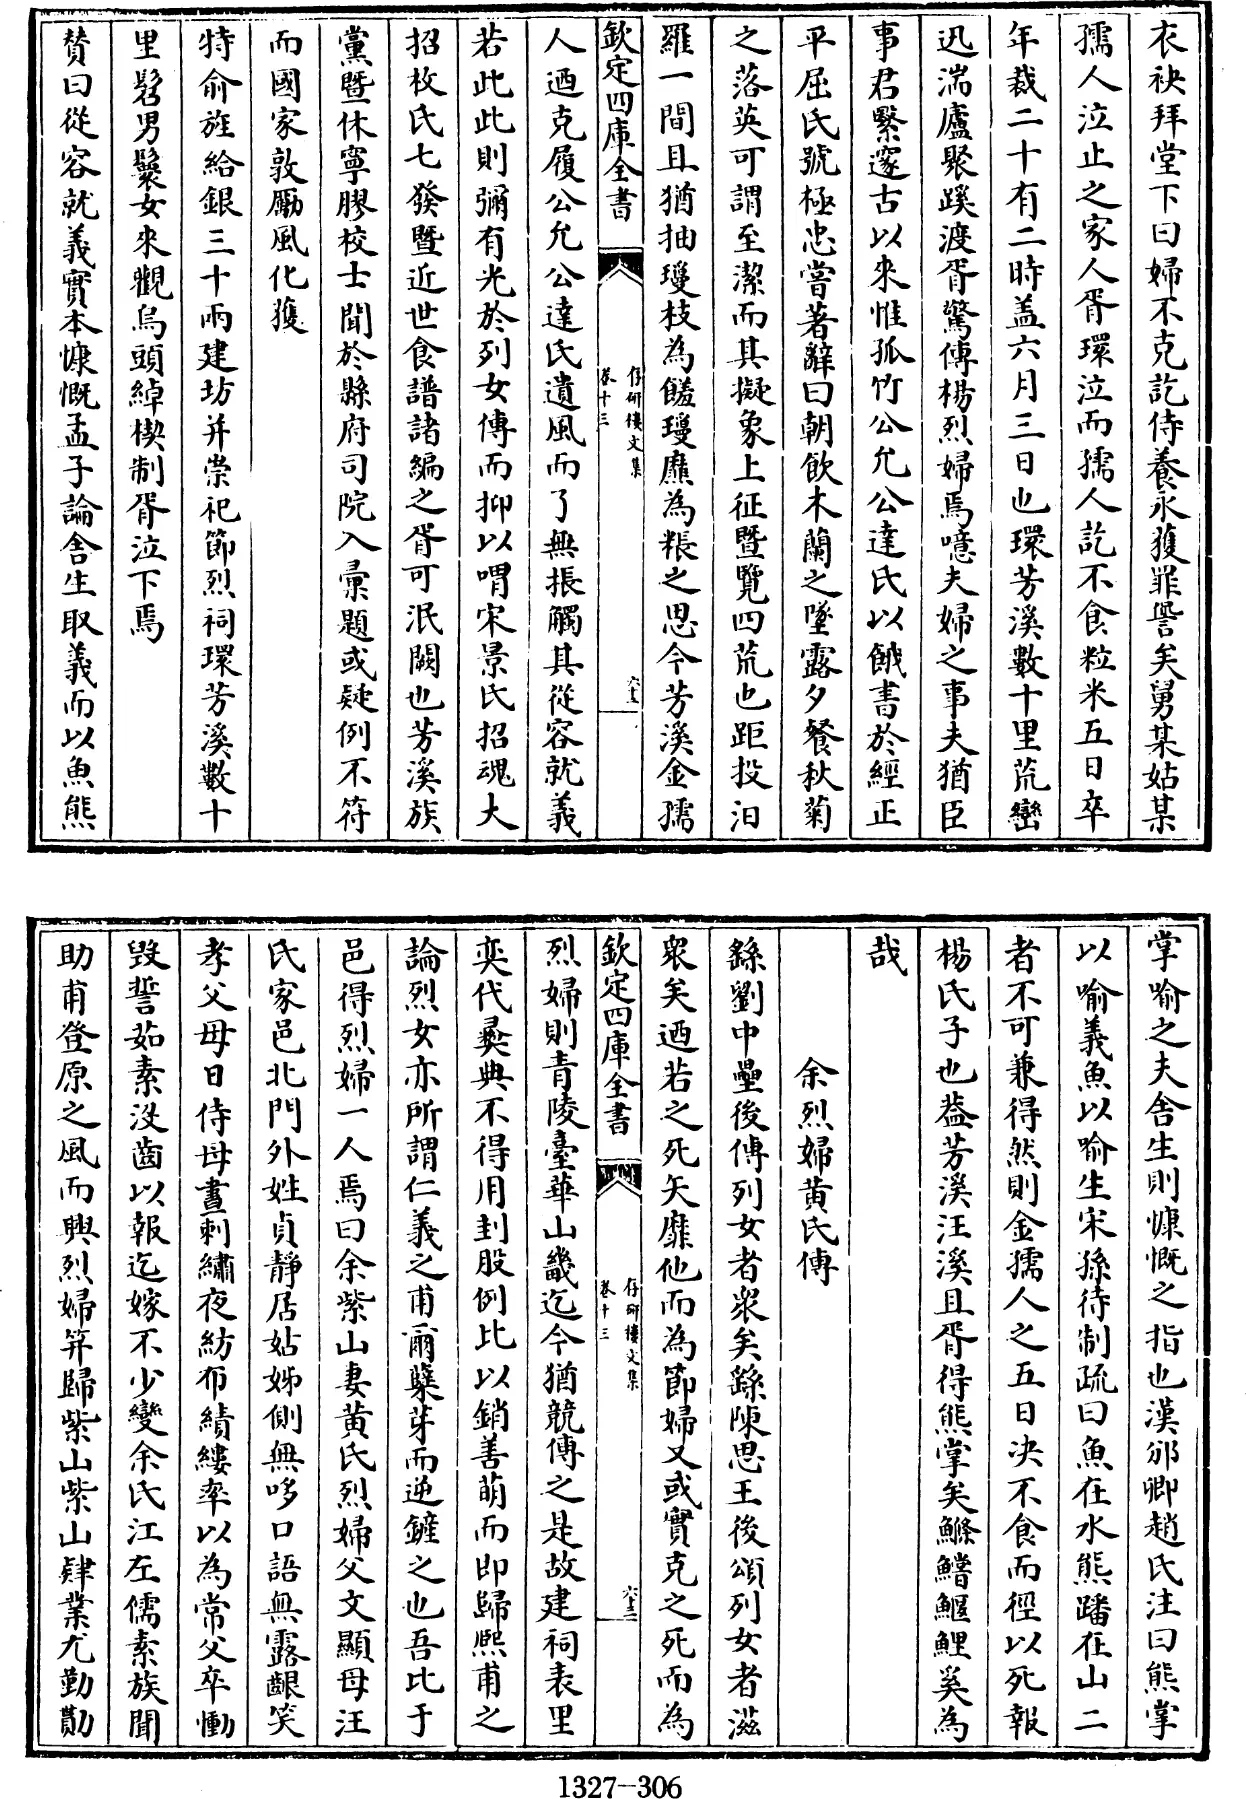 衣袂拜堂下曰婦不克訖侍養永獲罪譽矣舅某姑某
孺人泣止之家人胥環泣而孺人訖不食粒米五日卒
年裁二十有二時盖六月三日也環芳溪數十里荒巒
迅湍廬聚蹊渡胥驚傳楊烈婦焉噫夫婦之事夫猶臣
事君繄邃古以來惟孤竹公允公達氏以餓書於經正
平屈氏號極忠嘗著辭曰朝飲木蘭之墜露夕餐秋菊
之落英可謂至潔而其擬象上征暨覽四荒也距投汨
羅一間且猶抽瓊枝為餱瓊靡為粻之思今芳溪金孺
欽定四庫全書
存研樓文集
卷十三
人迺克履公允公達氏遺風而了無掁觸其從容就義
若此此則彌有光於列女傳而抑以喟宋景氏招魂大
招枚氏七發暨近世食譜諸編之胥可泯闕也芳溪族
黨暨休寧膠校士聞於縣府司院入彙題或疑例不符
而國家敦勵風化獲
特俞旌給銀三十兩建坊并崇祀節烈祠環芳溪數十
里髫男鬟女來觀烏頭綽楔制胥泣下焉
贊曰從容就義實本慷慨孟子論舍生取義而以魚熊
掌喻之夫舍生則慷慨之指也漢邠卿趙氏注曰熊掌
以喻義魚以喻生宋孫待制疏曰魚在水熊蹯在山二
者不可兼得然則金孺人之五日決不食而徑以死報
楊氏子也葢芳溪汪溪且胥得熊掌矣鰷鱨鰋鯉奚為
哉
余烈婦黄氏傳
繇劉中壘後傳列女者衆矣繇陳思王後頌列女者滋
衆矣迺若之死矢靡他而為節婦又或實克之死而為
欽定四庫全書
存研樓文集
卷十三
烈婦則青陵臺華山畿迄今猶競傳之是故建祠表里
奕代彝典不得用刲股例比以銷善萌而即歸熙甫之
論烈女亦所謂仁義之甫爾櫱芽而逆鏟之也吾比于
邑得烈婦一人焉曰余紫山妻黄氏烈婦父文顯母汪
氏家邑北門外姓貞靜居姑姊側無哆口語無露齦笑
孝父母日侍母晝刺繡夜紡布績縷率以為常父卒慟
毁誓茹素沒齒以報迄嫁不少變余氏江左儒素族聞
助甫登原之風而興烈婦笄歸紫山紫山肄業尤勤勩
1327-306